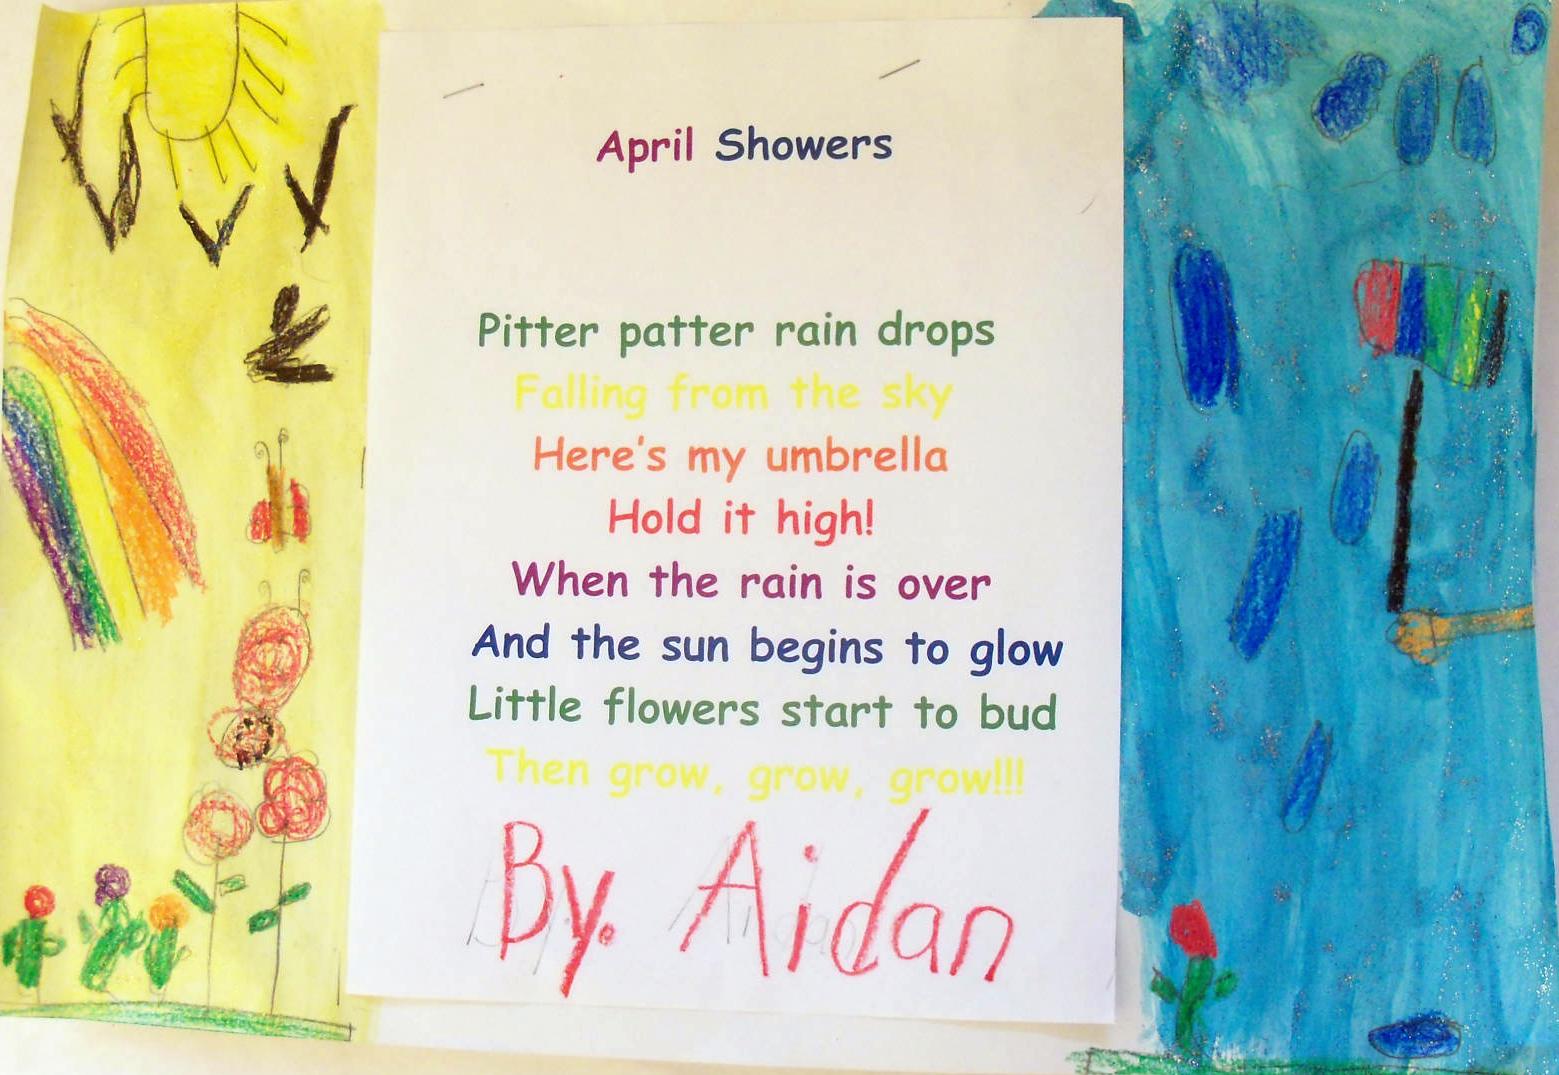 April Showers
Pitter patter rain drops
Falling from the sky
Here's my umbrella
Hold it high!
When the rain is over
And the sun begins to glow
Little flowers start to bud
Then grow, grow, grow!!!
By. Aidan